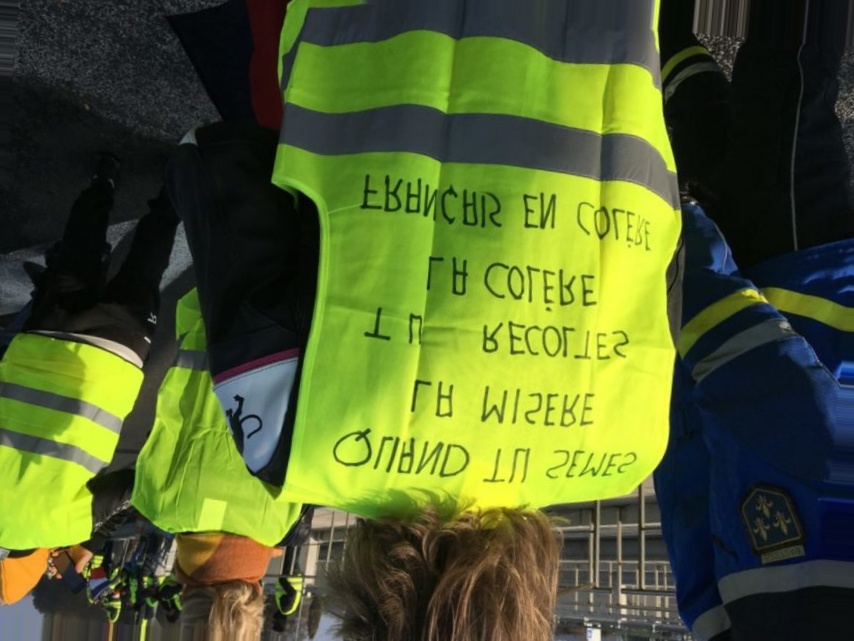 QUAND TU SEMES
LA MISERE
TU RECOLTES
LA COLÈRE
FRANÇAIS EN COLÈRE